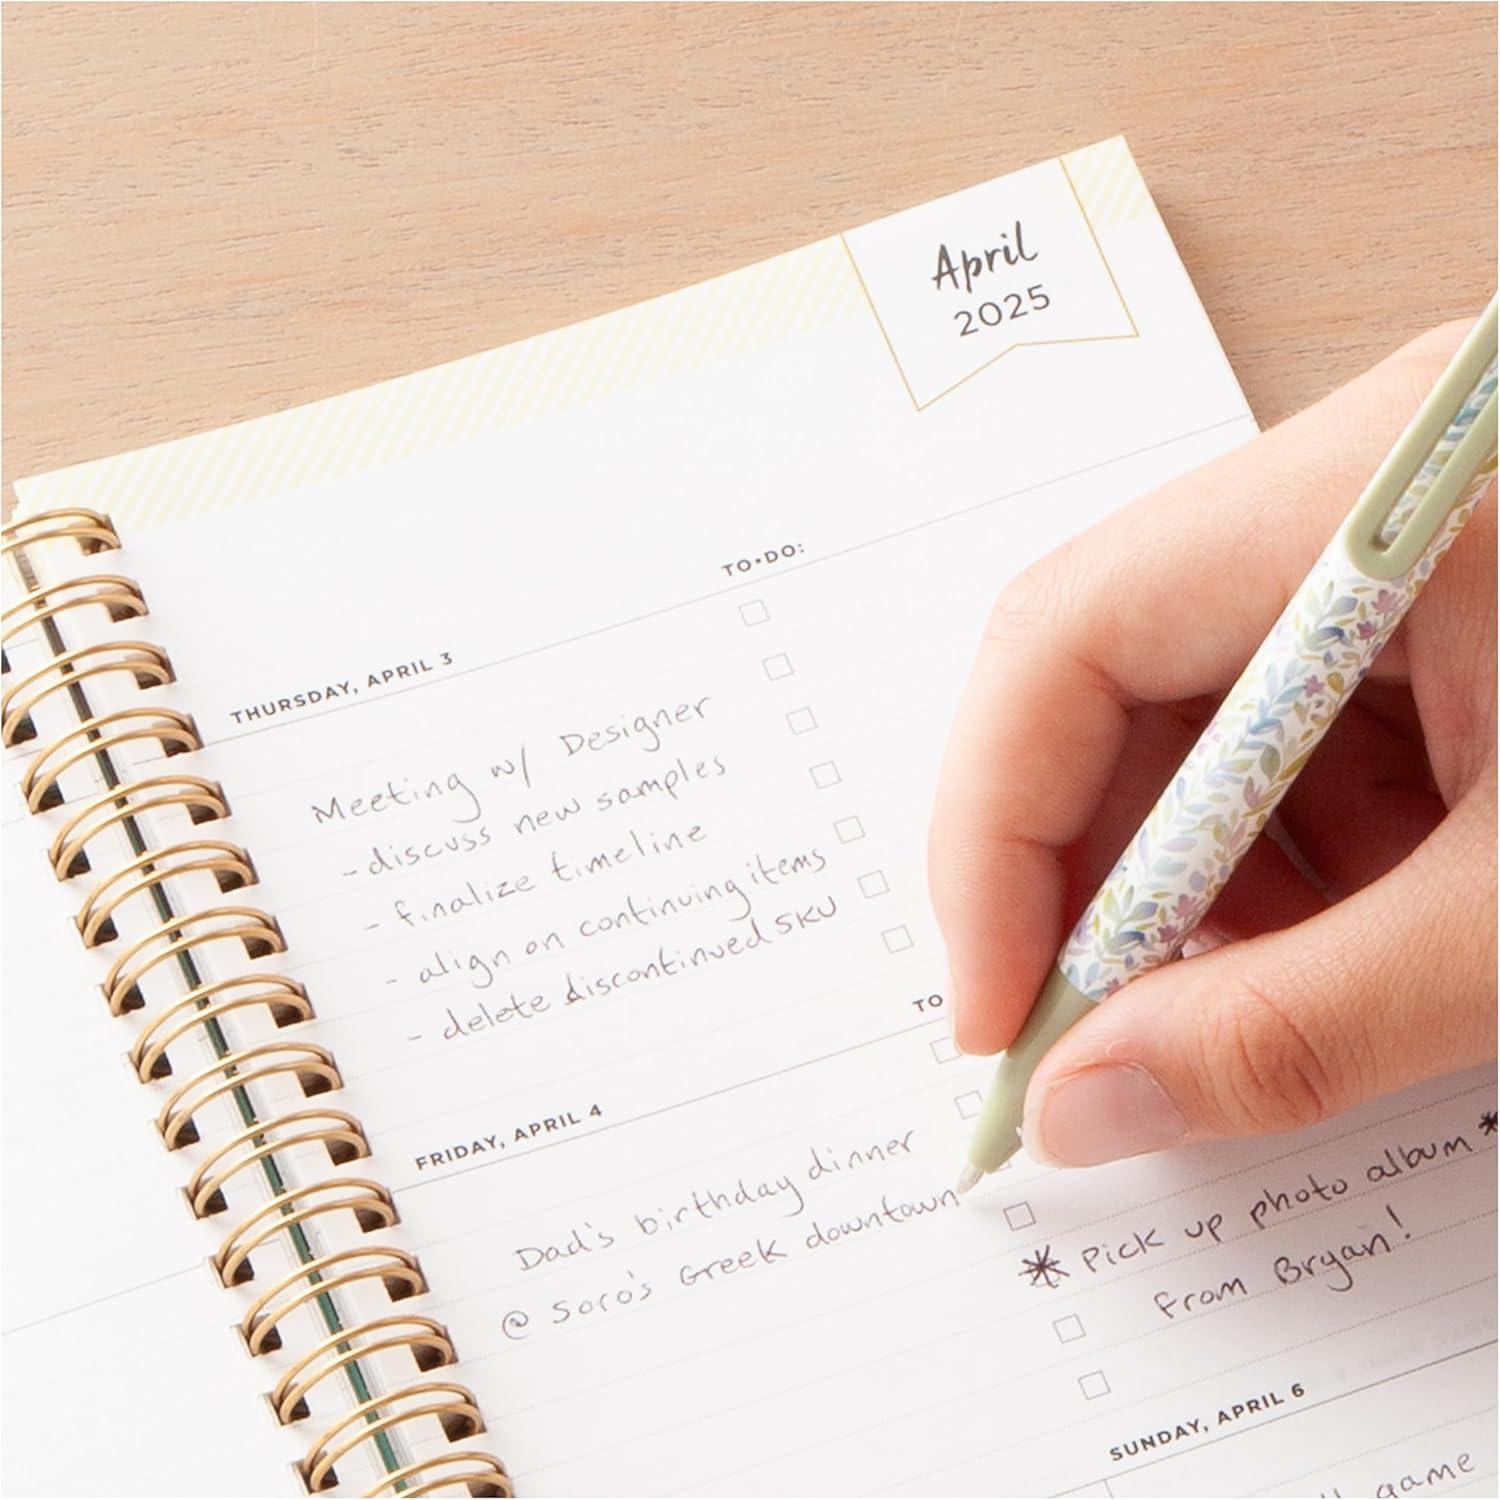 April
2025
TO•DO:
THURSDAY, APRIL 3
Meeting w/ Designer
-discuss new samples
- finalize timeline
- align on continuing items
- delete discontinued SKU
TO
FRIDAY, APRIL 4
Dad's birthday dinner
@ Soro's Greek downtown
* Pick up photo album *
from Bryan!
SUNDAY, APRIL 6
game